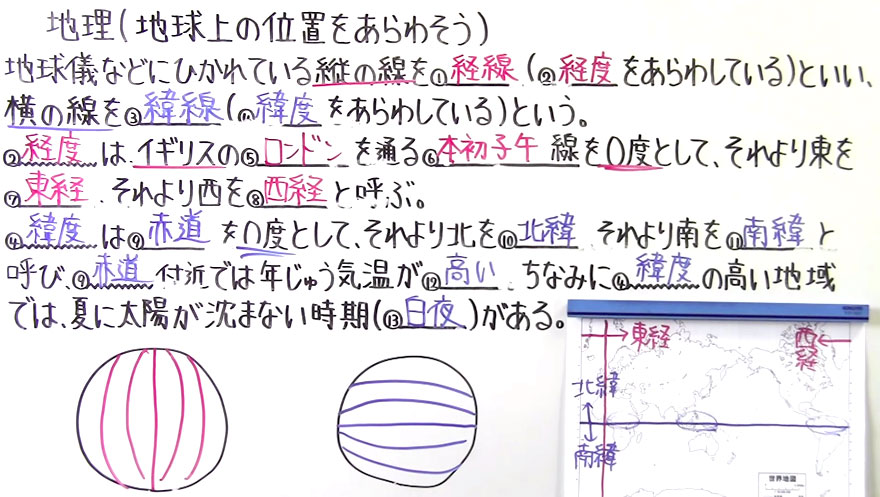 地理(地球上の位置をあらわそう)
地球儀などにひかれている縦の線を①経線(②経度をあらわしている)といい、
横の線を③緯線(④緯度をあらわしている)という。
②経度は、イギリスの⑤ロンドンを通る⑥本初子午線を0度として、それより東を
⑦東経、それより西を⑧西経と呼ぶ。
④緯度は⑨赤道を0度として、それより北を⑩北緯、それより南を⑪南緯と
呼び、⑨赤道付近では年じゅう気温が⑫高い。ちなみに④緯度の高い地域
では、夏に太陽が沈まない時期(⑬白夜)がある。
東経
西経
北緯
南緯
世界地図